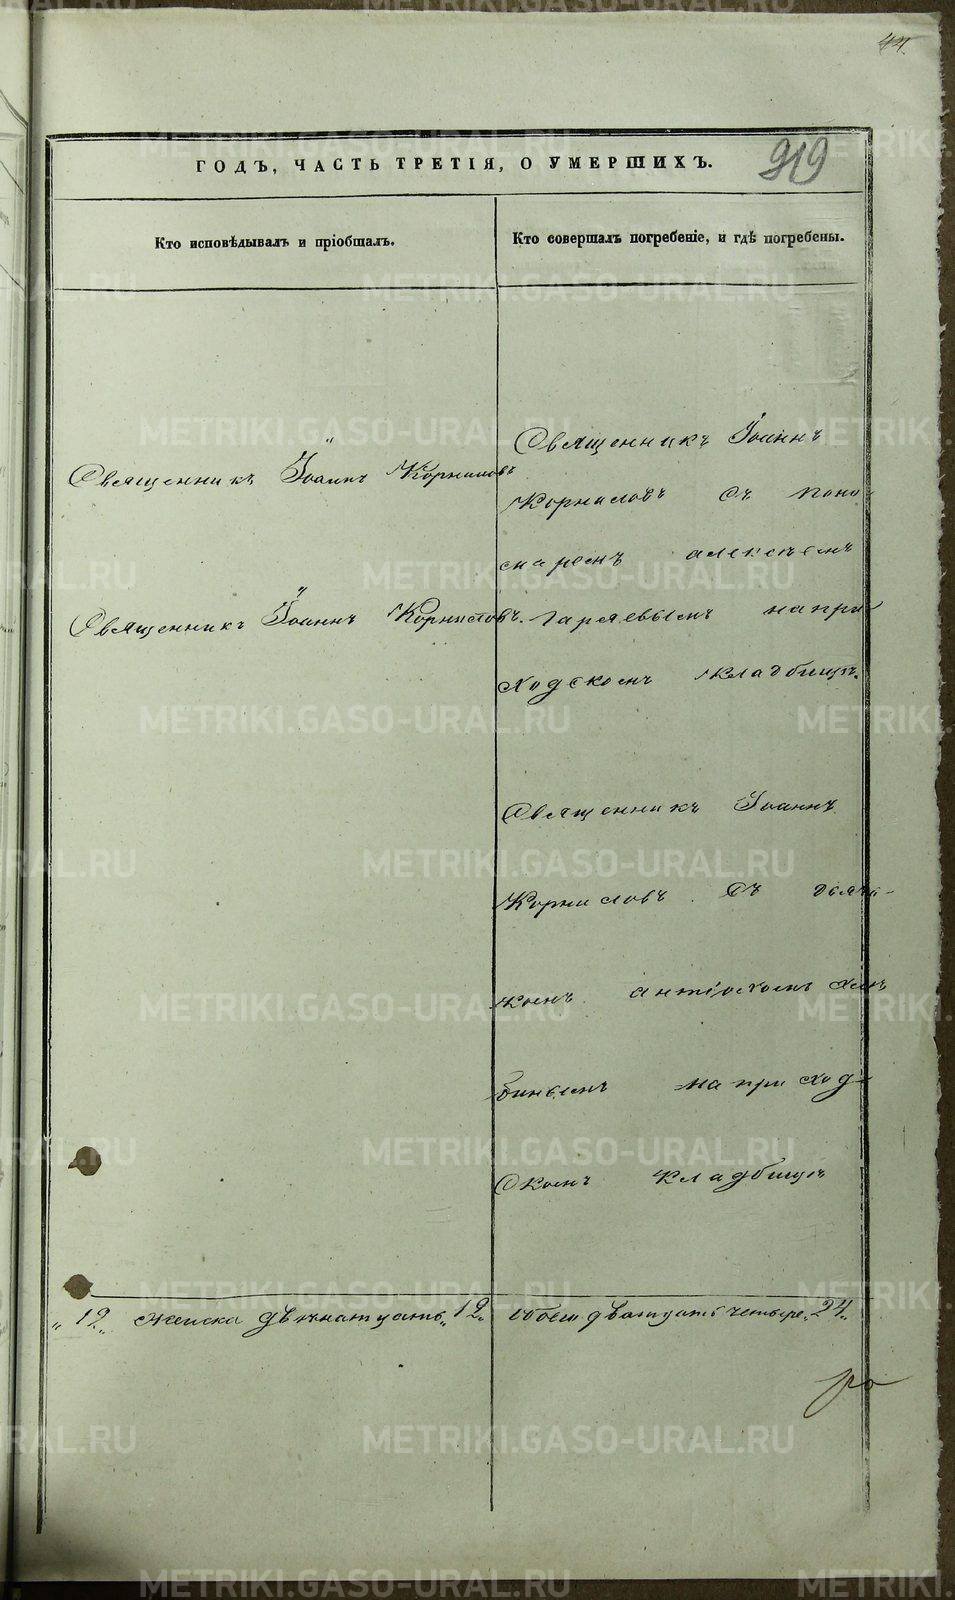 44.
ГОДЪ, ЧАСТЬ ТРЕТІЯ, О УМЕРШИХЪ.
919
Кто исповѣдывалъ и пріобщалъ.
Кто совершалъ погребеніе, и гдѣ погребены.
Священникъ Іоаннъ Корниловъ
Священникъ Іоаннъ Корниловъ.
Священникъ Іоаннъ
Корниловъ съ поно
маремъ алексѣемъ
на при
ходскомъ кладбищѣ.
Священникъ Іоаннъ
Корниловъ съ дьяч-
комъ антіохомъ
на приход-
скомъ кладбищѣ
„12„ женска двѣнатцать „12„ обоего двадцать четыре „24„
METRIKI.GASO-URAL.RU